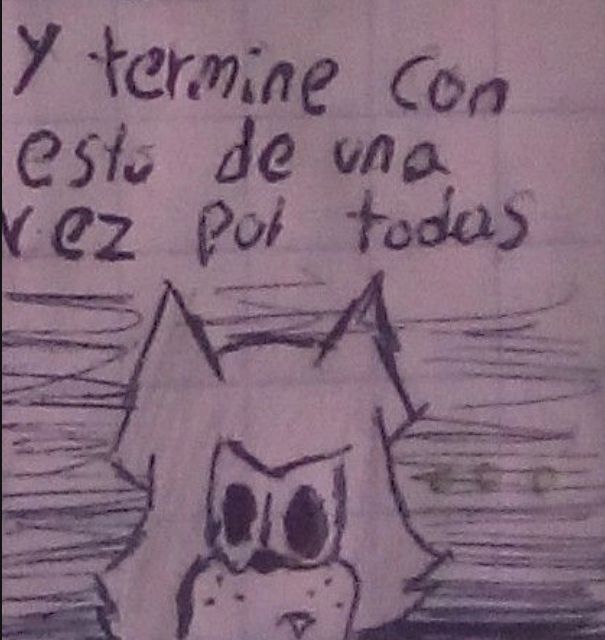 Y termine con
esto de una
vez por todas